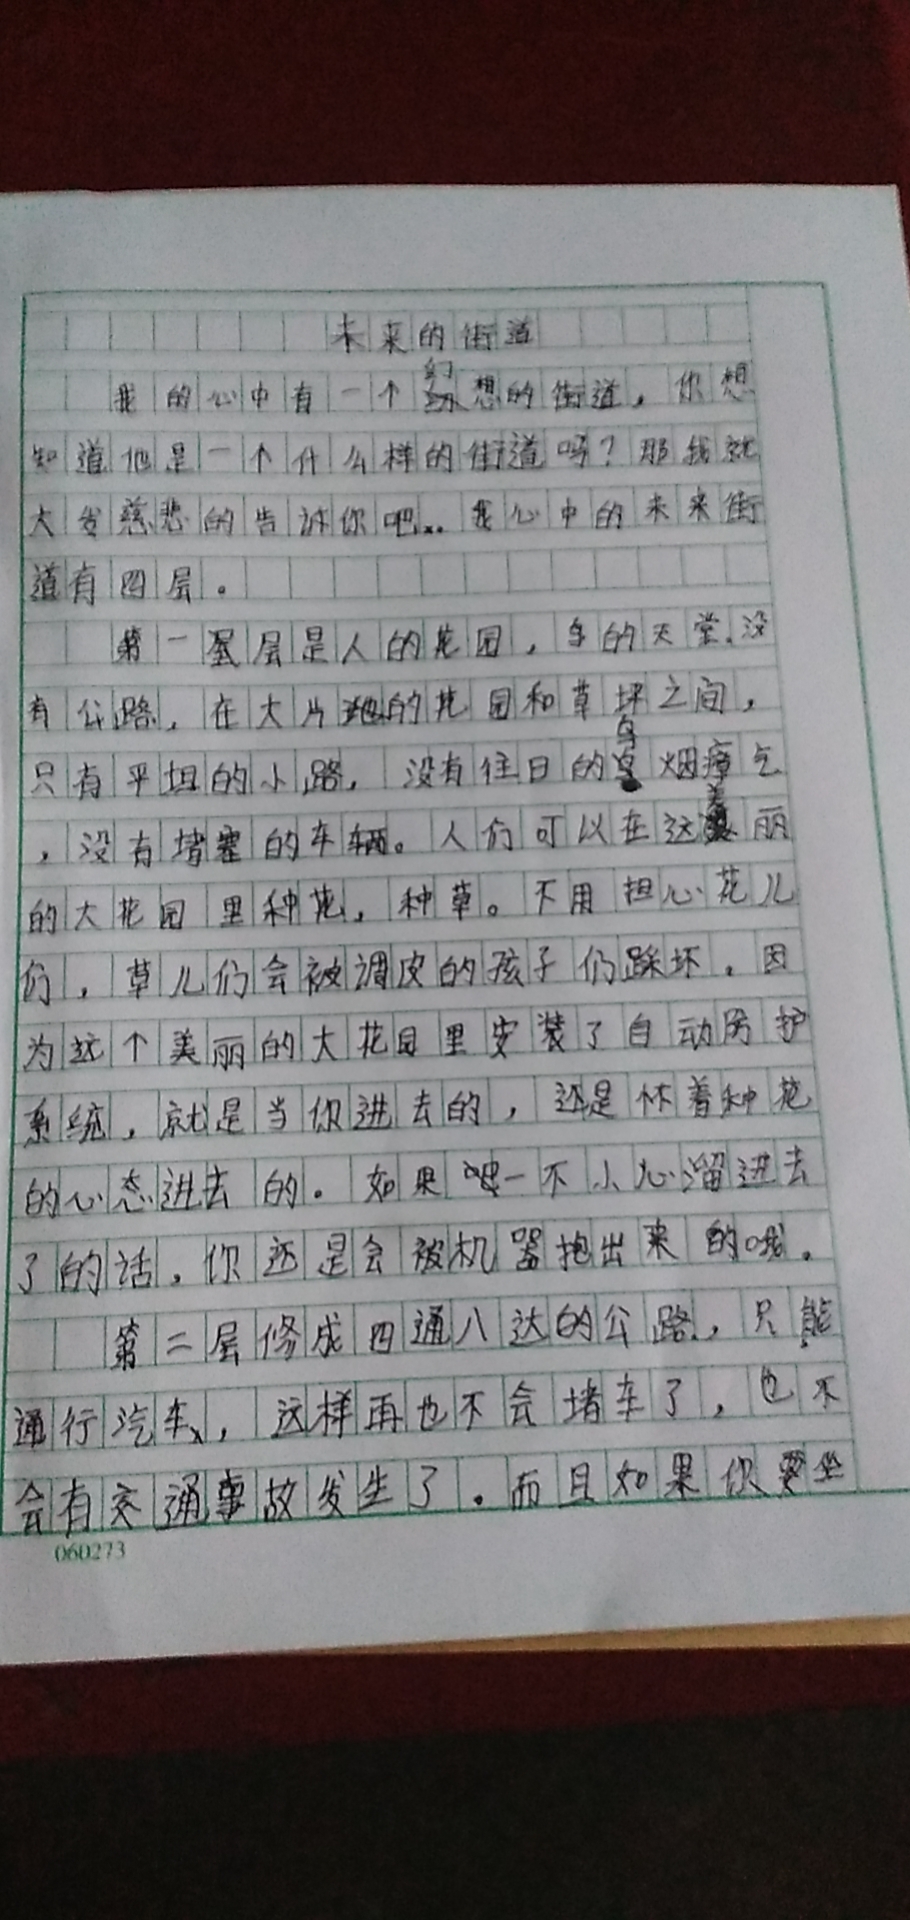 未来的街道
我的心中有一个幻想的街道，你想
知道他是一个什么样的街道吗？那我就
大发慈悲的告诉你吧…我心中的未来街
道有四层。
第一层是人的花园，鸟的天堂。没
有公路，在大片的花园和草坪之间，
只有平坦的小路，没有往日的乌烟瘴气
，没有堵塞的车辆。人们可以在这美丽
的大花园里种花，种草。不用担心花儿
们，草儿们会被调皮的孩子们踩坏。因
为这个美丽的大花园里安装了自动防护
系统，就是当你进去的，还是怀着种花
的心态进去的。如果一不小心溜进去
了的话，你还是会被机器抱出来的哦。
第二层修成四通八达的公路，只能
通行汽车，这样再也不会堵车了，也不
会有交通事故发生了。而且如果你要坐
060273